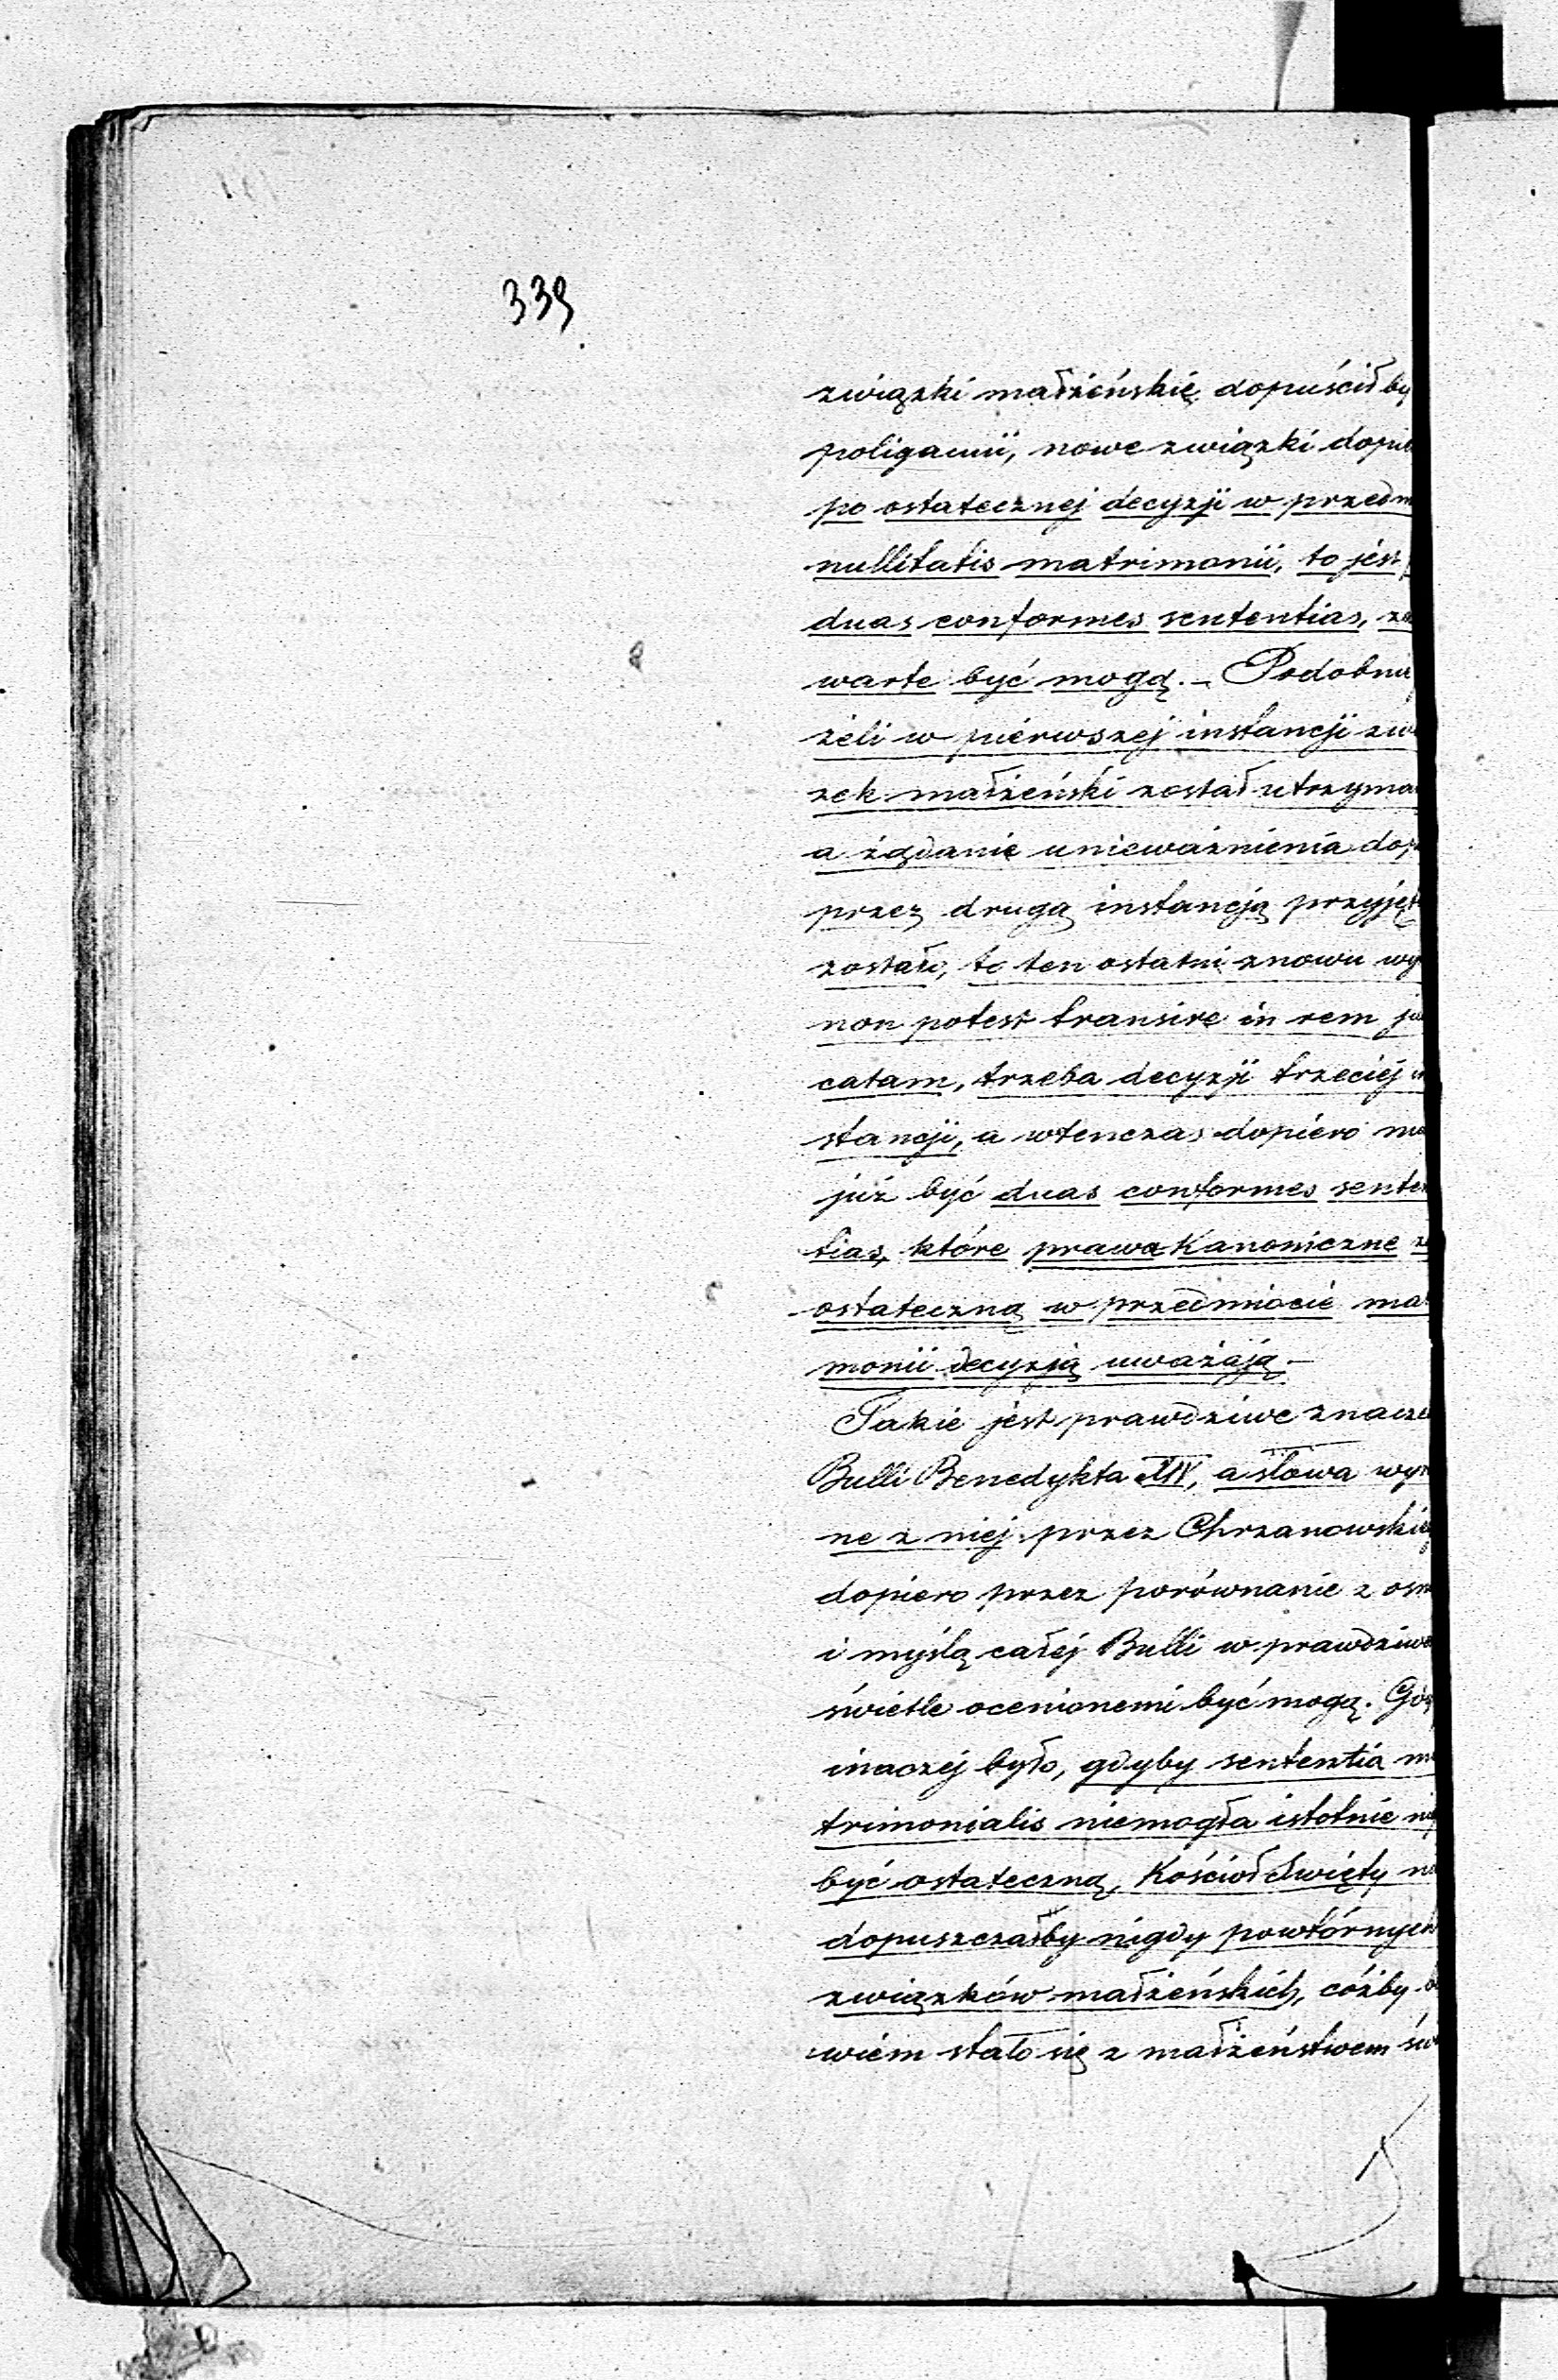 339
związki małżeńskie dopuścił by
poligamii, nowe związki
po ostatecznej decyzji w przedm
nullitatis matrimonii, to jest
duas conformes sententias,
warte być mogą. – Podobni
żeli w piérwszej instancji zwi
zek małżeński został utrzyma
a żądanie unieważnienia dop
przez drugą instancją przyjęt
zostało, to ten ostatni znowu wy
non potest transire in rem ju
catam, trzeba decyzji trzeciéj in
stancji, a wtenczas dopiéro mo
już być duas conformes senten
tias, które prawa Kanoniczne za
ostateczną w przedmiocie mat
monii decyzją uważają. –
Takie jest prawdziwe znacze
Bulli Benedykta XIV, a słowa wyr
ne z niej przez Chrzanowskieg
dopiero przez porównanie z osn
i myślą całéj Bulli w prawdziwe
świetle ocenionemi być mogą. Gdy
inaczéj było, gdyby sententia ma
trimonialis niemogła istotnie nig
być ostateczną, Kościoł Święty ni
dopuszczałby nigdy powtórnych
związków małżeńskich, cóżby
wiém stało się z małżeństwem